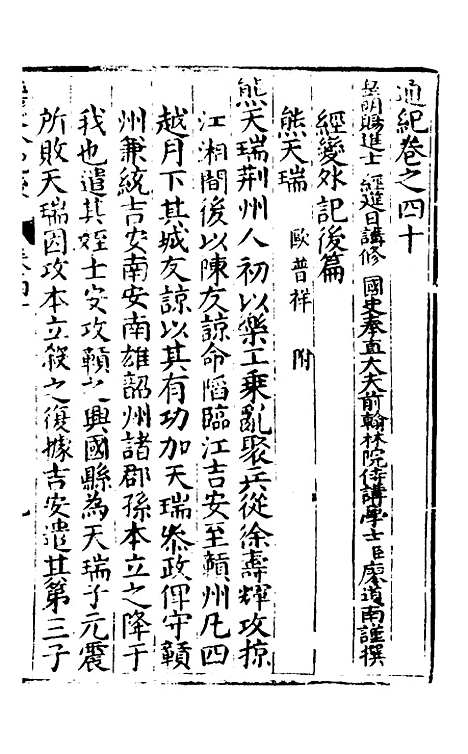 通紀卷之四十
皇明賜進士 經筵日講修 國史奉直大夫前翰林院侍講學士臣廖道南謹撰
經變外記後篇
熊天瑞 歐普祥 附
熊天瑞荆州人初以樂工乗亂聚兵從徐壽輝攻掠
江湘間後以陳友諒命陷臨江吉安至贑州凡四
越月下其城友諒以其有功加天瑞叅政俾守贑
州兼統吉安南安南雄韶州諸郡孫本立之降于
我也遣其姪士安攻贑之興國縣為天瑞子元震
所敗天瑞因攻本立殺之復據吉安遣其第三子